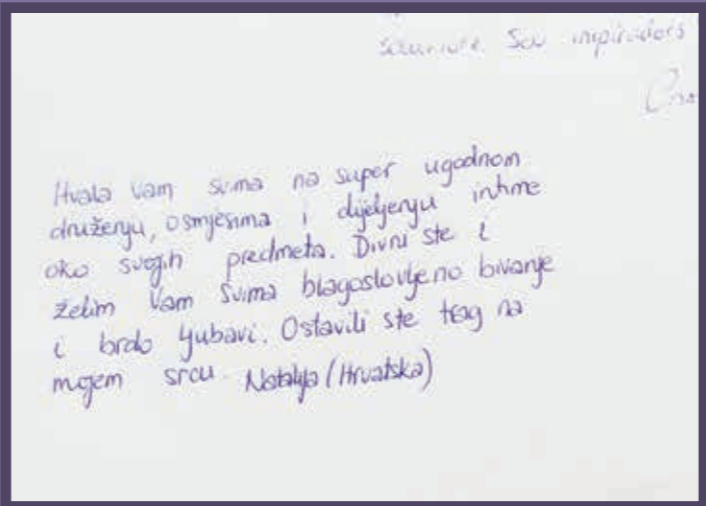 Sou inspiradors
Hvala Vam svima na super ugodnom
druženju, osmjesima i dijeljenju intime
oko svojih predmeta. Divni ste i
želim Vam svima blagoslovljeno bivanje
i brdo ljubavi. Ostavili ste trag na
mojem srcu. Natalija (Hrvatska)